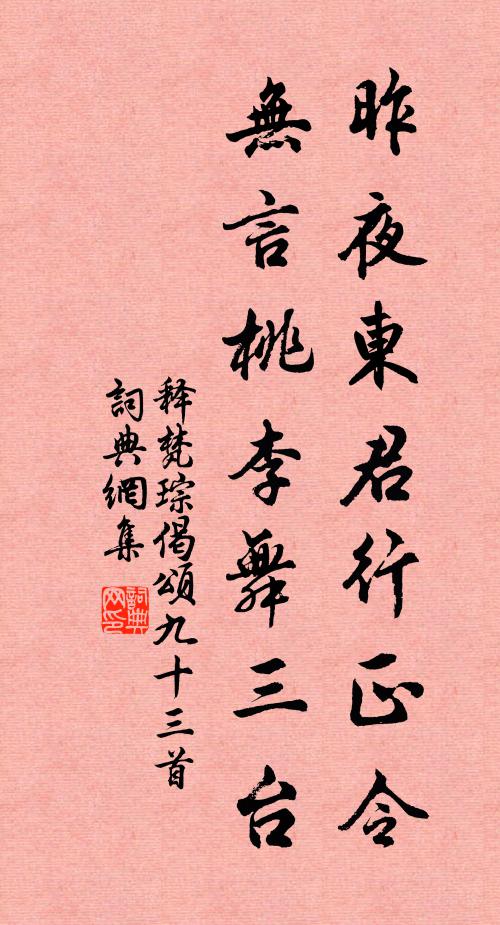 昨夜東君行正令
無言桃李舞三台
释梵琮偈頌九十三首
詞典網集
詞典網印